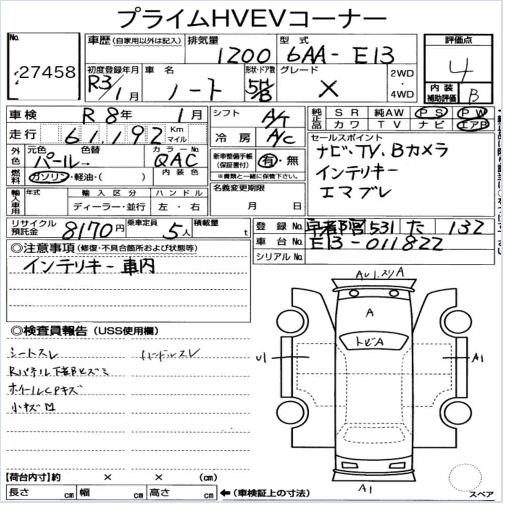 プライムHVEVコーナー
No. 27458
車歴 (自家用以外は記入) 排気量 1200 型式 6AA-E13
評価点 4
内装補助評価 B
初度登録年月 R3/1月 車名 ノート 形状・ドア数 5H/B グレード X 2WD・4WD
車検 R8年 1月 シフト A/T
走行 61,192 Km マイル 冷房 A/C
純正品 SR 純AW PS PW
カワ TV ナビ エアB
外色 元色 パール→ 色替 カラーNo. QAC 内装色
燃料 ガソリン・軽油・( )
新車整備手帳 (保証書付) 有・無
※書類と一緒に保管下さい。
セールスポイント
ナビ、TV、Bカメラ
インテリキー
エマブレ
輸入車用 年式 輸入区分 ディーラー・並行 ハンドル 左・右
名義変更期限 月 日
リサイクル預託金 8170円 乗車定員 5人 積載量 t
登録No. 531 た 132
車台No. E13-011822
シリアルNo.
◎注意事項 (修復・不具合箇所および状態等)
インテリキー車内
◎検査員報告 (USS使用欄)
シートスレ ハンドルスレ
ホイールCPキズ
小キズ凹
A
トビA
U1
A1
A1
【荷台内寸】約 × × (cm)
長さ cm 幅 cm 高さ cm ←(車検証上の寸法)
スペア